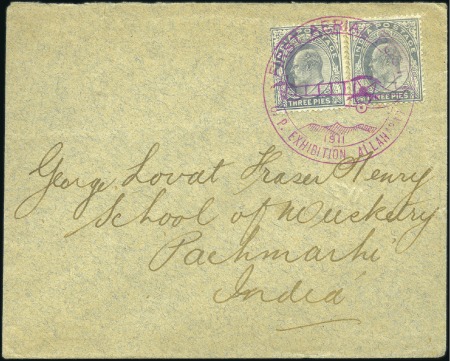 FIRST AERIAL
INDIA POSTAGE
THREE PIES
THREE PIES
1911
U.P. EXHIBITION ALLAHABAD
George Lovat Fraser Henry
School of Musketry
Pachmarhi
India